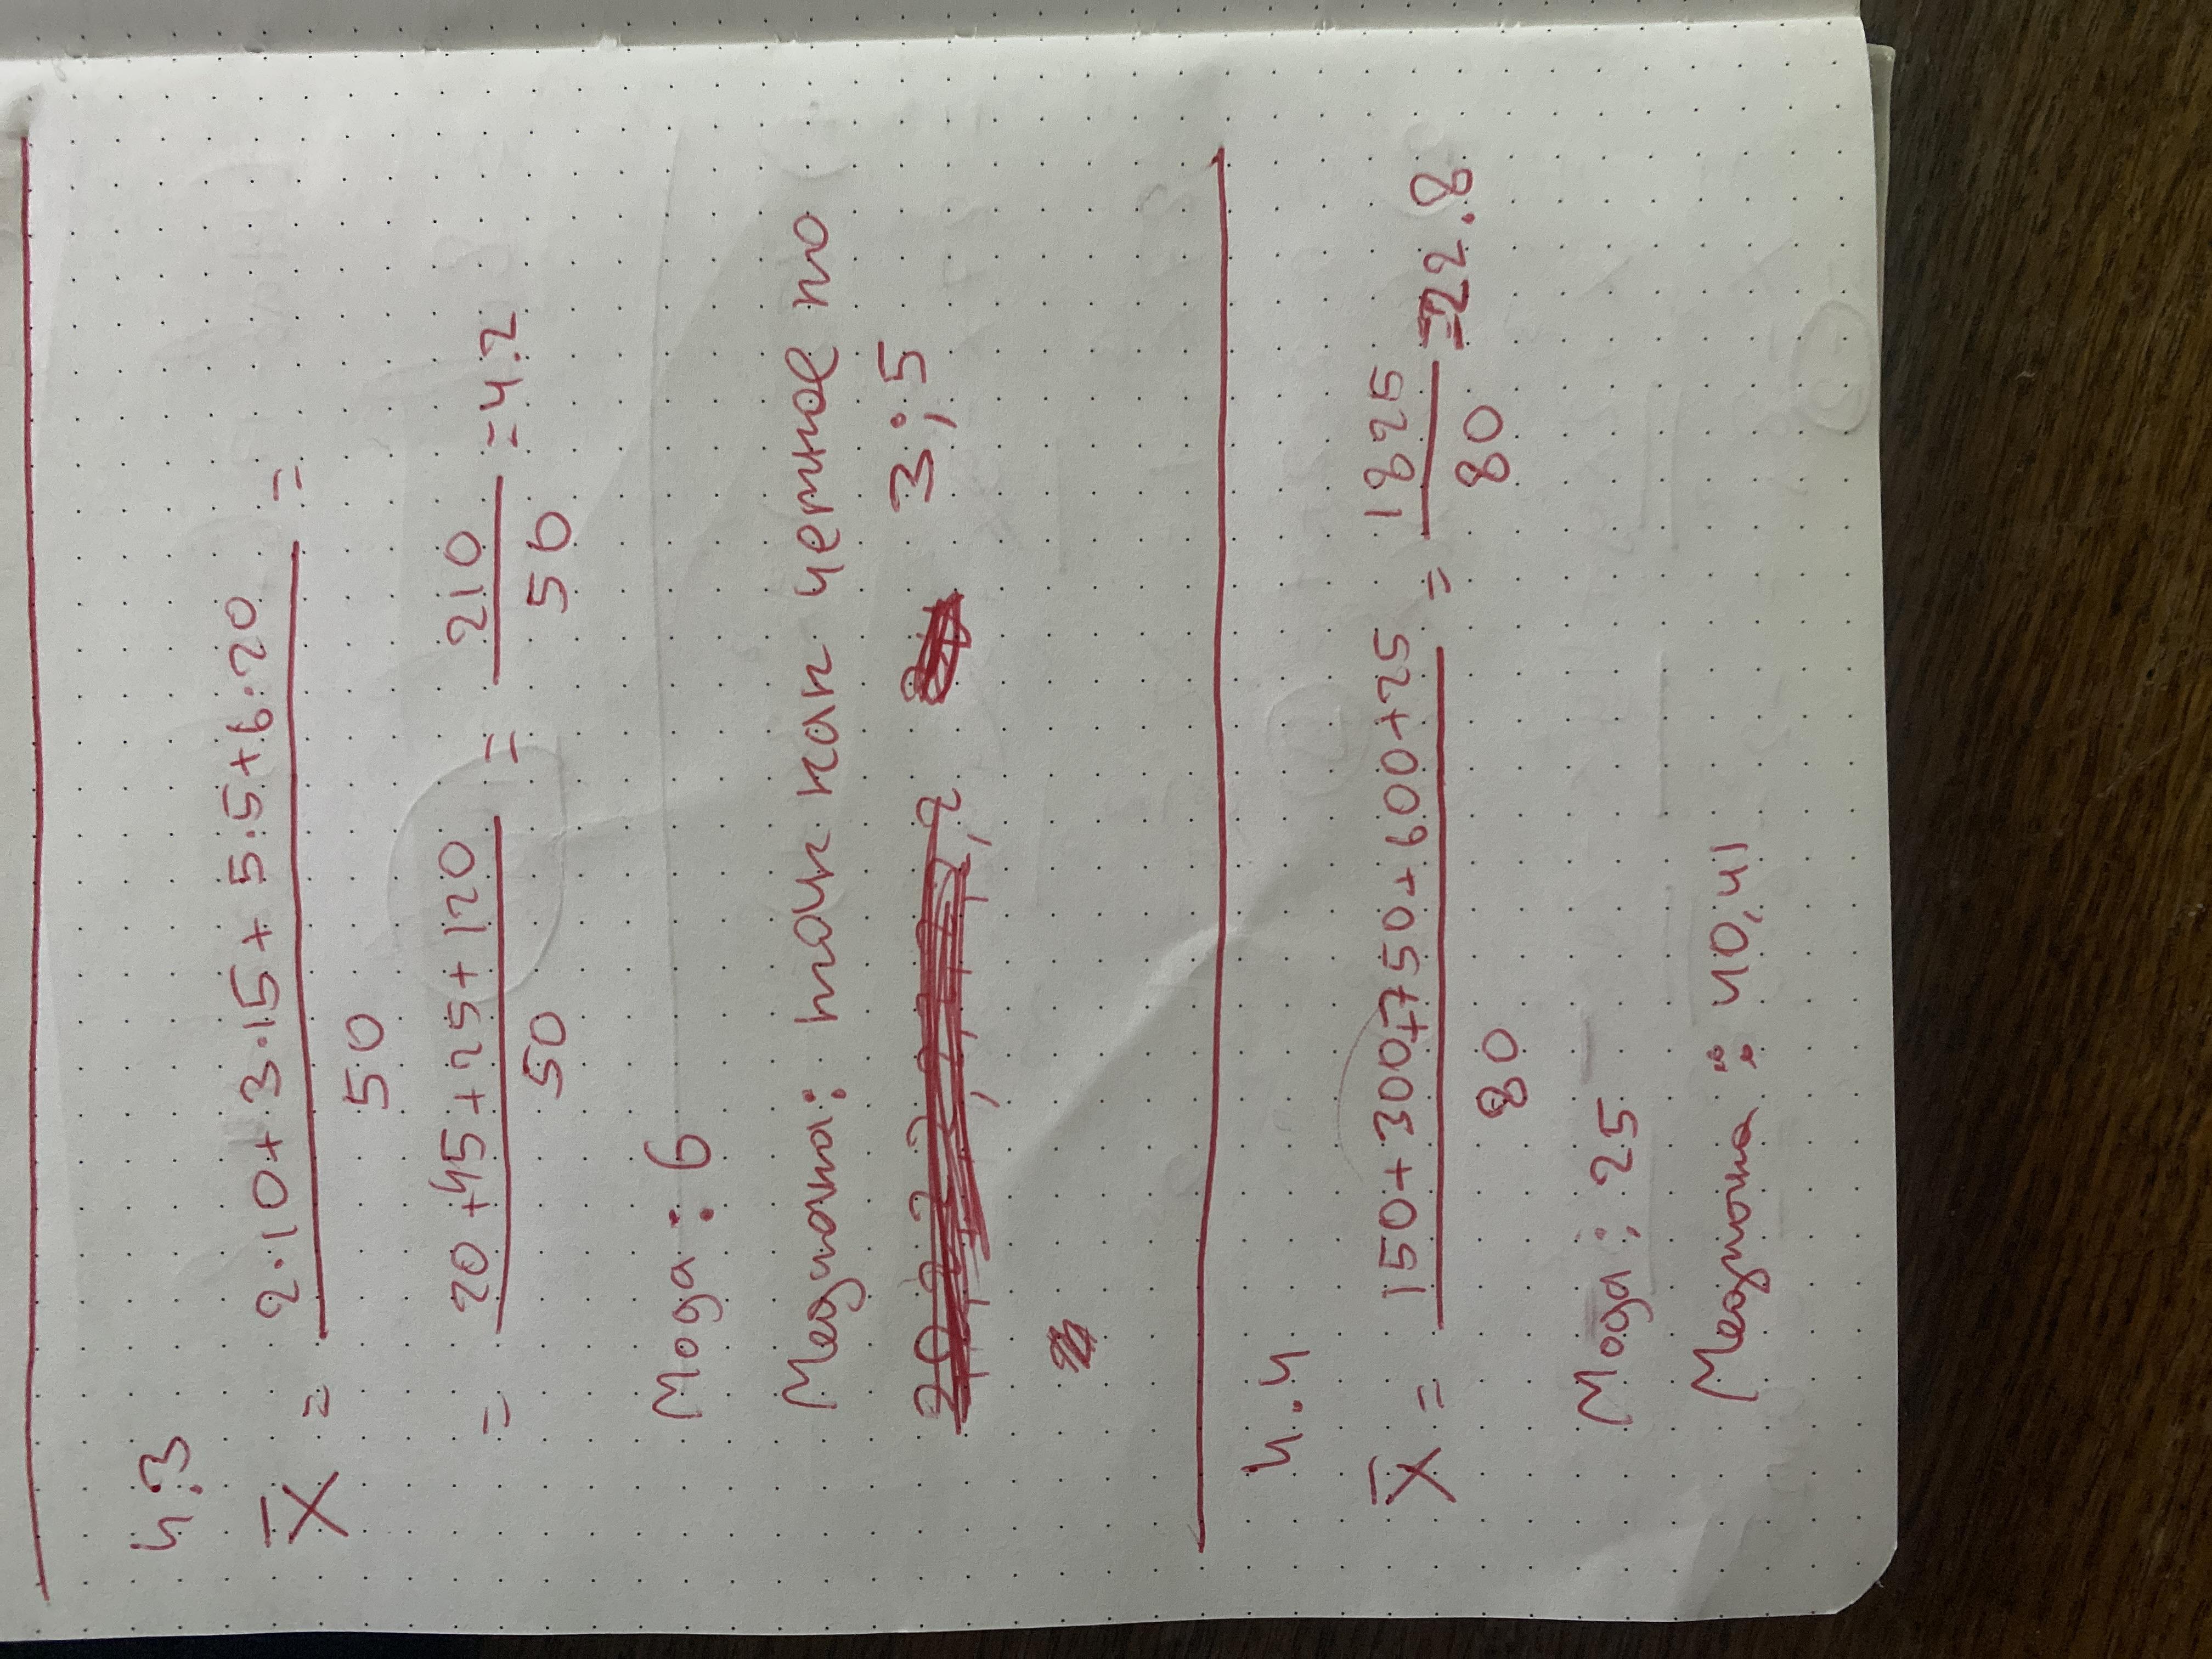 4.3
X̄ = 2·10+3·15+5·5+6·20 =
50
= 20+45+25+120 = 210 = 4.2
50 50
Мода: 6
Медиана: так как четное то
3;5
4.4
X̄ = 150+300+750+600+25 = 1825 = 22.8
80 80
Мода: 25
Медиана: 40,41